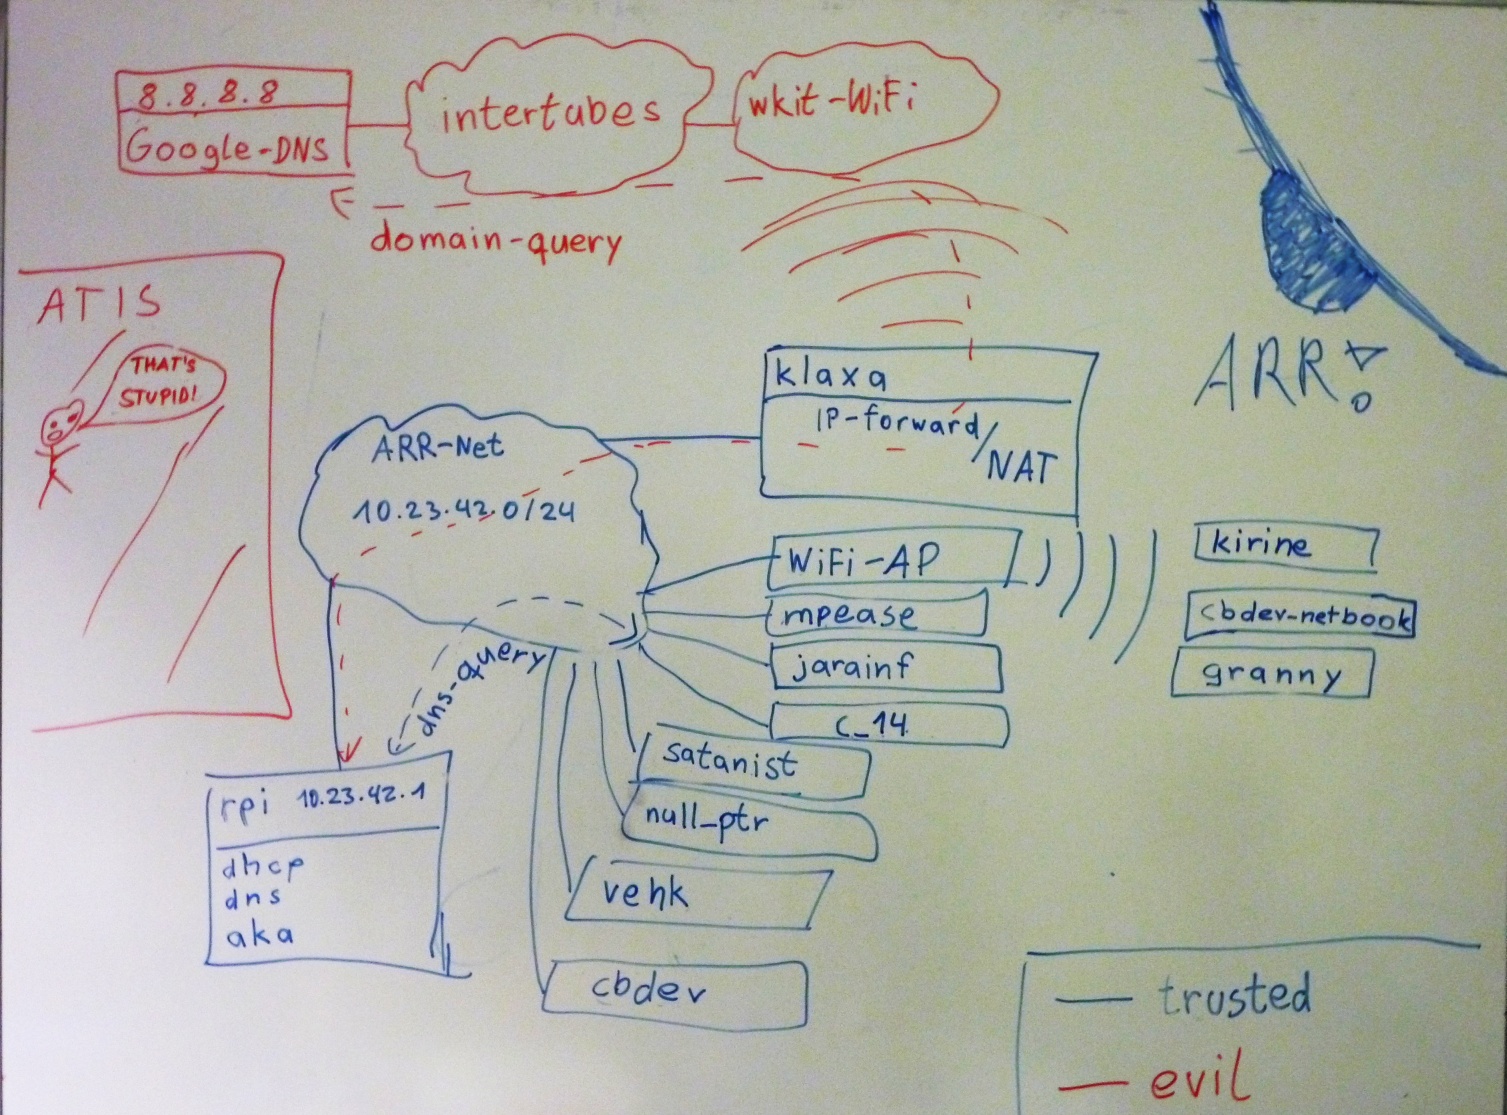 8.8.8.8
Google-DNS
intertubes
wkit-WiFi
domain-query
ATIS
THAT'S
STUPID!
ARR!
klaxa
IP-forward/
NAT
ARR-Net
10.23.42.0/24
WiFi-AP
mpease
jarainf
c_14
kirine
cbdev-netbook
granny
dns-query
satanist
null_ptr
vehk
cbdev
rpi 10.23.42.1
dhcp
dns
aka
trusted
evil